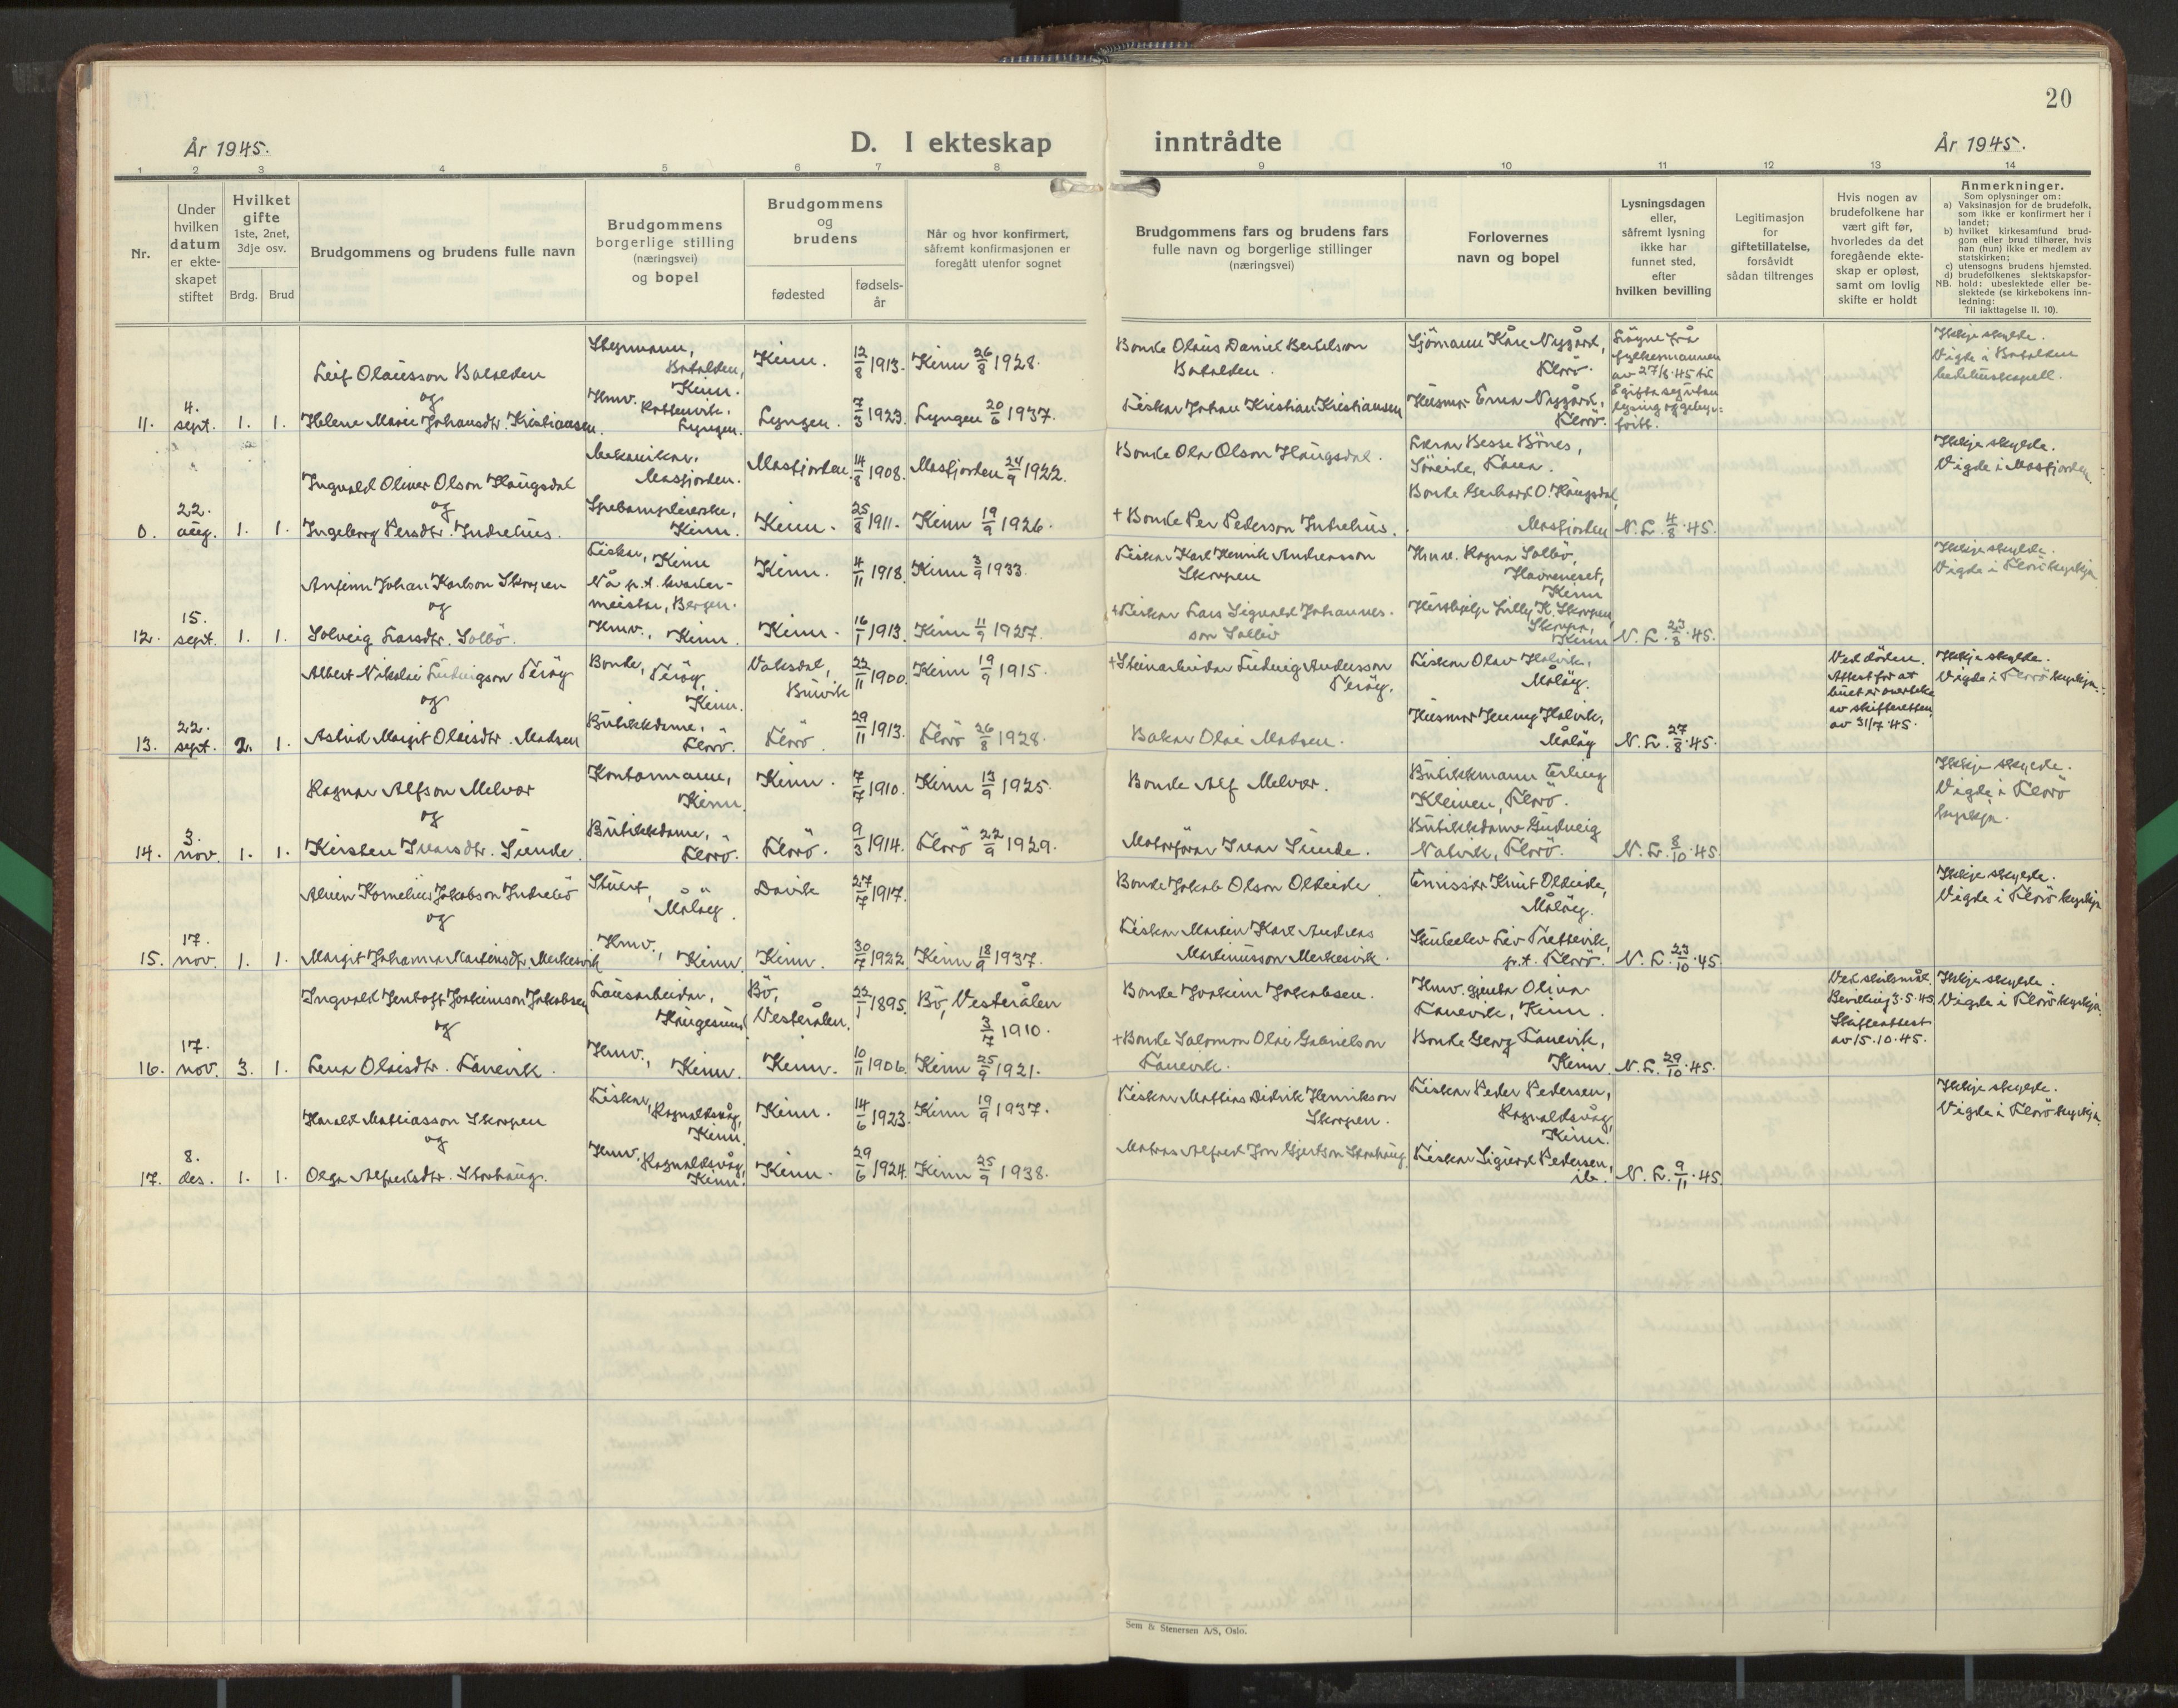 20
År 1945.
D. I ekteskap
inntrådte
År 1945.
1 2 3 4 5 6 7 8
9 10 11 12 13 14
Nr.
Under
hvilken
datum
er ekte-
skapet
stiftet
Hvilket
gifte
1ste, 2net,
3dje osv.
Brdg.
Brud
Brudgommens og brudens fulle navn
Brudgommens
borgerlige stilling
(næringsvei)
og bopel
Brudgommens
og
brudens
fødested
fødsels-
år
Når og hvor konfirmert,
såfremt konfirmasjonen er
foregått utenfor sognet
Brudgommens fars og brudens fars
fulle navn og borgerlige stillinger
(næringsvei)
Forlovernes
navn og bopel
Lysningsdagen
eller,
såfremt lysning
ikke har
funnet sted,
efter
hvilken bevilling
Legitimasjon
for
giftetillatelse,
forsåvidt
sådan tiltrenges
Hvis nogen av
brudefolkene har
vært gift før,
hvorledes da det
foregående ekte-
skap er opløst,
samt om lovlig
skifte er holdt
Anmerkninger.
Som oplysninger om:
a) Vaksinasjon for de brudefolk,
som ikke er konfirmert her i
landet;
b) hvilket kirkesamfund brud-
gom eller brud tilhører, hvis
han (hun) ikke er medlem av
statskirken;
c) utensogns brudens hjemsted.
d) brudefolkenes slektskapsfor-
NB. hold: ubeslektede eller be-
slektede (se kirkebokens inn-
ledning:
Til iakttagelse II. 10).
11.
4.
sept.
1. 1.
Leif Olausson Batalden
og
Helene Marie Johansdtr. Kristiansen.
Styrmann,
Batalden,
Kinn.
Hmv.
Rottenvik,
Lyngen.
Kinn. 12/8 1913. Kinn 26/8 1928.
Lyngen. 7/3 1923. Lyngen 20/6 1937.
Bonde Olaus Daniel Bertelson
Batalden.
Fiskar Johan Kristian Kristiansen
Sjömann Kåre Nygård,
Florö.
Husmor Erna Nygård,
Florö.
Löyve frå
fylkesmannen
av 27/8.45 til
å gifta seg utan
lysing og gebyr-
fritt.
Ikkje skylde.
Vigde i Batalden
bedehuskapell.
0.
22.
aug.
1. 1.
Ingvald Oliver Olson Haugsdal
og
Ingeborg Persdtr. Indrehus.
Mekanikar,
Masfjorden.
Kinn.
Masfjorden. 14/8 1908. Masfjorden 24/9 1922.
Kinn. 25/8 1911. Kinn 19/9 1926.
Bonde Ola Olson Haugsdal.
+ Bonde Per Pederson Indrehus.
Lærar Besse Bönes,
Söreide, Fana.
Bonde Gerhard O. Haugsdal,
Masfjorden
N. L. 4/8.45.
Ikkje skylde.
Vigde i Masfjorden.
12.
15.
sept.
1. 1.
Anfinn Johan Karlson Skorpen
og
Solveig Larsdtr. Solbö.
Fiskar, Kinn
Nå p.t. kvarter-
meistar, Bergen.
Hmv., Kinn.
Kinn. 4/11 1918. Kinn 3/9 1933.
Kinn. 16/1 1913. Kinn 11/9 1927.
Fiskar Karl Henrik Andreasson
Skorpen
+ Fiskar Lars Sigvald Johannes-
son Solbö
Hmv. Ragna Solbö,
Kinn
Hushjelp Lilly K. Skorpen,
Skorpa,
Kinn
N. L. 23/8.45.
Ikkje skylde.
Vigde i Florö kyrkja
13.
22.
sept.
2. 1.
Albert Nikolai Ludvigson Teröy
og
Astrid Margit Olaisdtr. Madsen
Bonde, Teröy,
Kinn.
Butikkdame,
Florö.
Vaksdal, 22/11 1900. Kinn 19/9 1915.
Florö. 29/11 1913. Florö 26/8 1928.
+ Steinarbeidar Ludvig Andersson
Teröy.
Bakar Olai Madsen.
Fiskar Olav Halvik,
Målöy.
Husmor Jenny Halvik,
Målöy
N. L. 27/8.45.
Ved döden.
Attest for at
buet er overteke
av skifteretten,
av 31/7.45.
Ikkje skylde.
Vigde i Florö kyrkja.
14.
3.
nov.
1. 1.
Ragnar Alfson Melvær
og
Kirsten Ivarsdtr. Sunde.
Kontormann,
Kinn.
Butikkdame,
Florö.
Kinn. 7/7 1910. Kinn 13/9 1925.
Florö. 9/3 1914. Florö 22/9 1929.
Bonde Alf Melvær.
Motorförar Ivar Sunde.
Butikkmann Erling
Kleiven, Florö.
Butikkdame Gudveig
Nalvik, Florö.
N. L. 8/10.45.
Ikkje skylde.
Vigde i Florö
kyrkja.
15.
17.
nov.
1. 1.
Alvin Kornelius Jakobson Indrebö
og
Margit Johanna Martinsdtr. Merkesvik
Stuert,
Målöy.
Hmv., Kinn.
Davik 27/7 1917.
Kinn. 30/7 1922. Kinn 18/9 1937.
Bonde Jakob Olson Oldeide
Fiskar Martin Karl Andreas
Martinusson Merkesvik.
Emissær Knut Oldeide,
Målöy.
Skuleelev Liv Trettevik,
p.t. Florö.
N. L. 23/10.45
Ikkje skylde.
Vigde i Florö kyrkja
16.
17.
nov.
3. 1.
Ingvald Jentoft Joakimson Jakobsen
og
Lena Olaisdtr. Fanevik.
Lausarbeidar,
Haugesund
Hmv., Kinn.
Bö,
Vesterålen. 22/1 1895. Bö, Vesterålen
3/7 1910.
Kinn. 10/11 1906. Kinn 25/9 1921.
Bonde Joakim Jakobsen.
+ Bonde Salomon Olai Gabrielson
Fanevik.
Hmv. gjenta Oliva
Fanevik, Kinn.
Bonde Georg Fanevik,
Kinn.
N. L. 29/10.45.
Ved skilsmål.
Bevilling 3.5.45.
Skifteattest
av 15.10.45.
Ikkje skylde.
Vigde i Florö kyrkja.
17.
8.
des.
1. 1.
Harald Matiasson Skorpen
og
Olga Alfredsdtr. Storhaug.
Fiskar,
Rognaldsvåg,
Kinn.
Hmv.
Rognaldsvåg,
Kinn.
Kinn. 14/6 1923. Kinn 19/9 1937.
Kinn. 29/6 1924. Kinn 25/9 1938.
Fiskar Mathias Didrik Henrikson
Skorpen.
Matros Alfred Jon Gjertson Storhaug.
Fiskar Peder Pedersen,
Rognaldsvåg,
Kinn.
Fiskar Sigurd Pedersen,
ib.
N. L. 9/11.45.
Ikkje skylde.
Vigde i Florö kyrkja.
Sem & Stenersen A/S, Oslo.